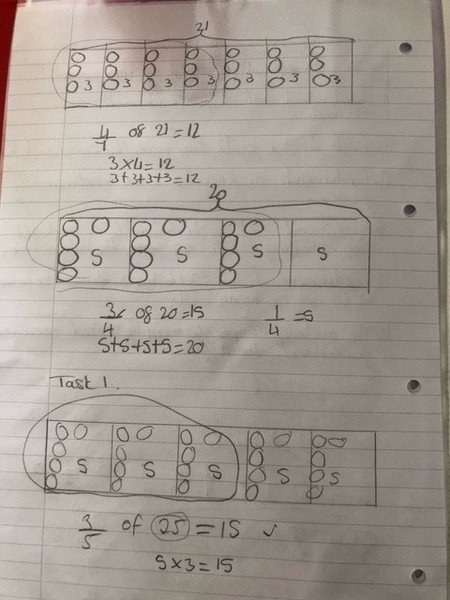 21
3 3 3 3 3 3 3
4/7 of 21 = 12
3 x 4 = 12
3+3+3+3 = 12
20
5 5 5 5
3/4 of 20 = 15 1/4 = 5
5+5+5+5 = 20
Task 1.
5 5 5 5 5
3/5 of 25 = 15 ✓
5 x 3 = 15